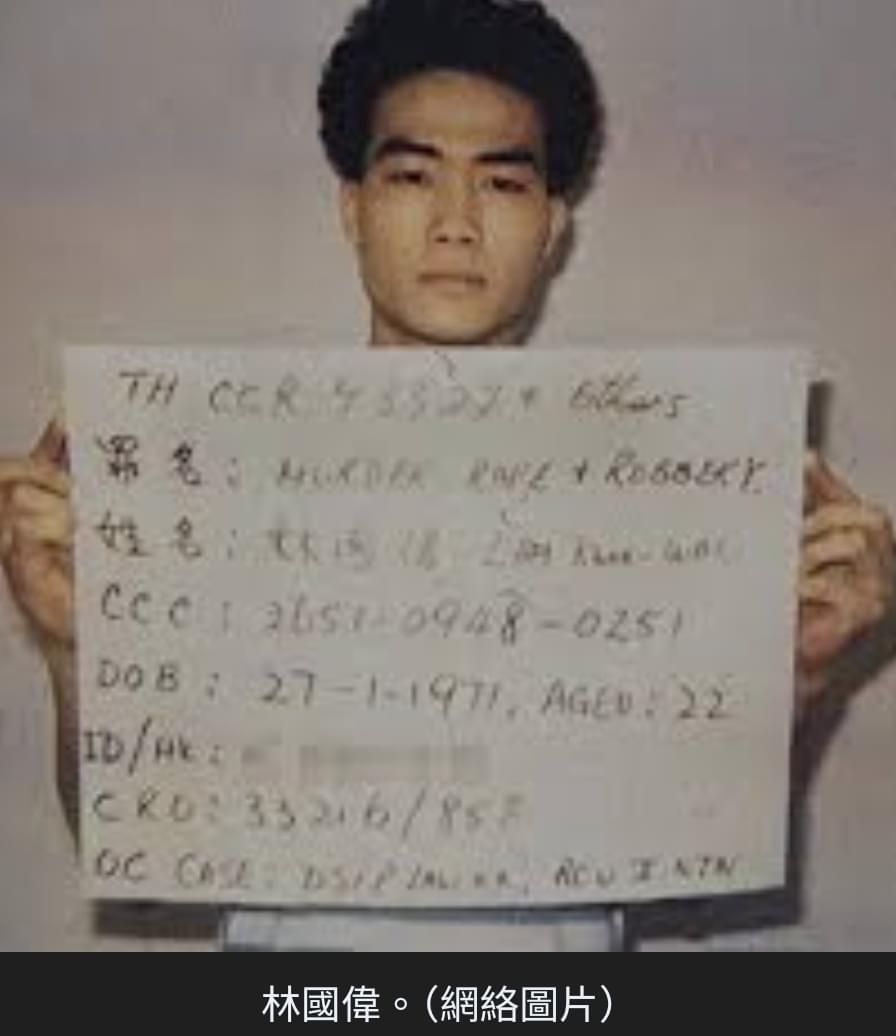 TH CCR & others
罪名: MURDER RAPE + ROBBERY
姓名: 林國偉 LAM Kwok-WAI
CCC: 2651-0948-0251
DOB: 27-1-1971, AGED: 22
ID/HK:
CRO:
OC CASE:
林國偉。（網絡圖片）